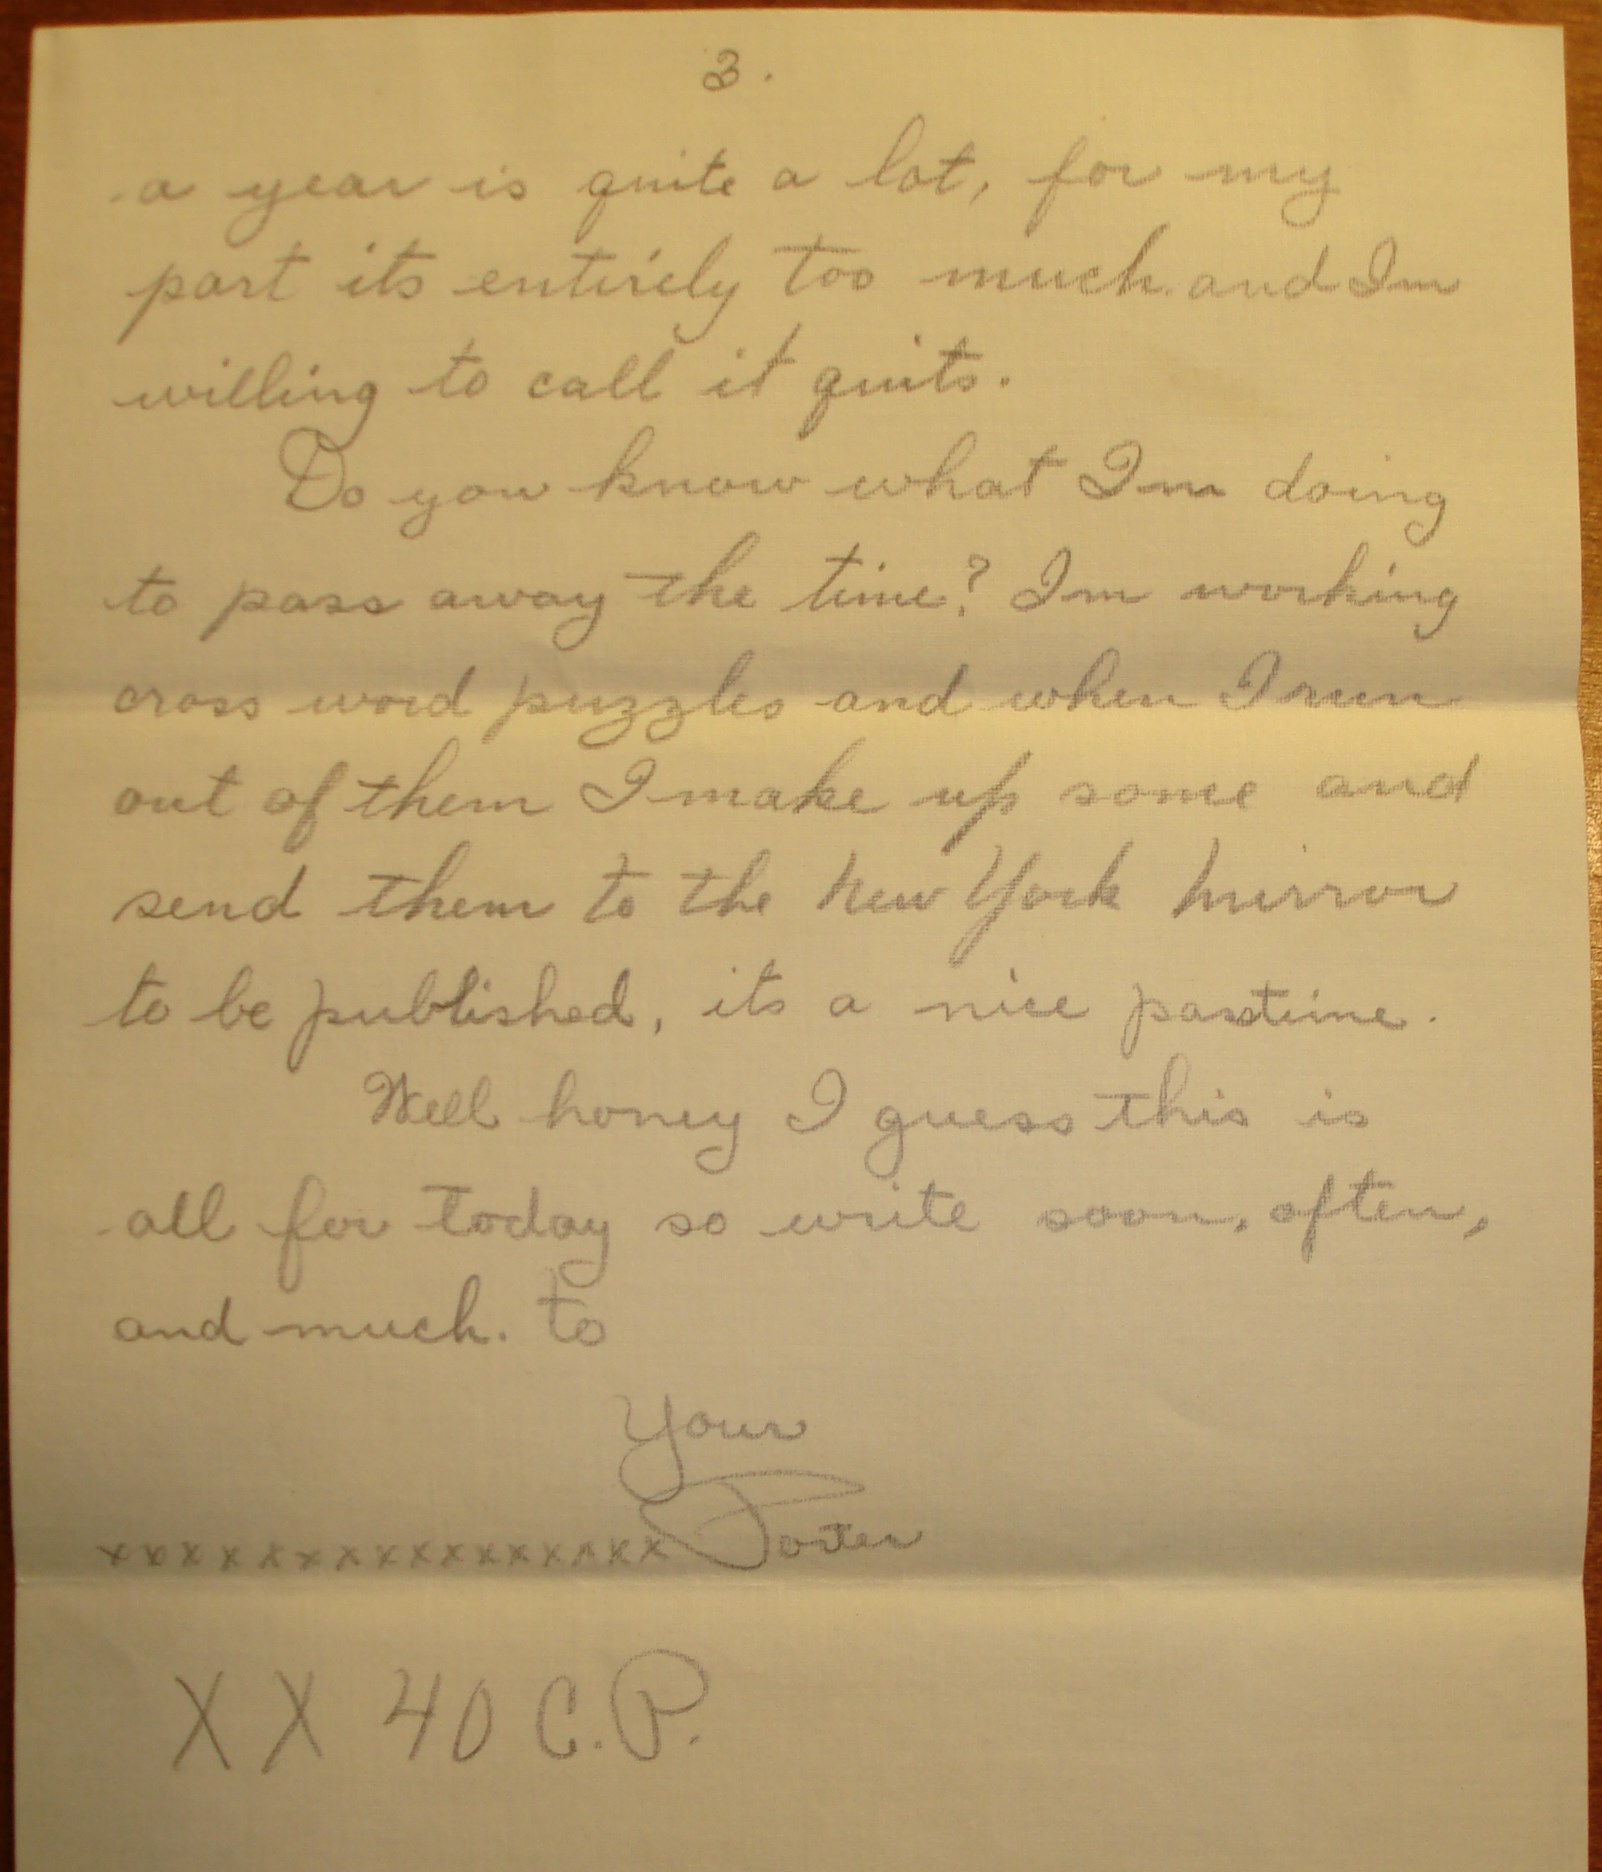 3.
a year is quite a lot, for my
part its entirely too much and Im
willing to call it quits.
Do you know what Im doing
to pass away the time? Im working
cross word puzzles and when I run
out of them I make up some and
send them to the New York Mirror
to be published, its a nice pastime.
Well honey I guess this is
all for today so write soon, often,
and much. to
Your
xxxxxxxxxxxxxxxx
XX 40 C.P.